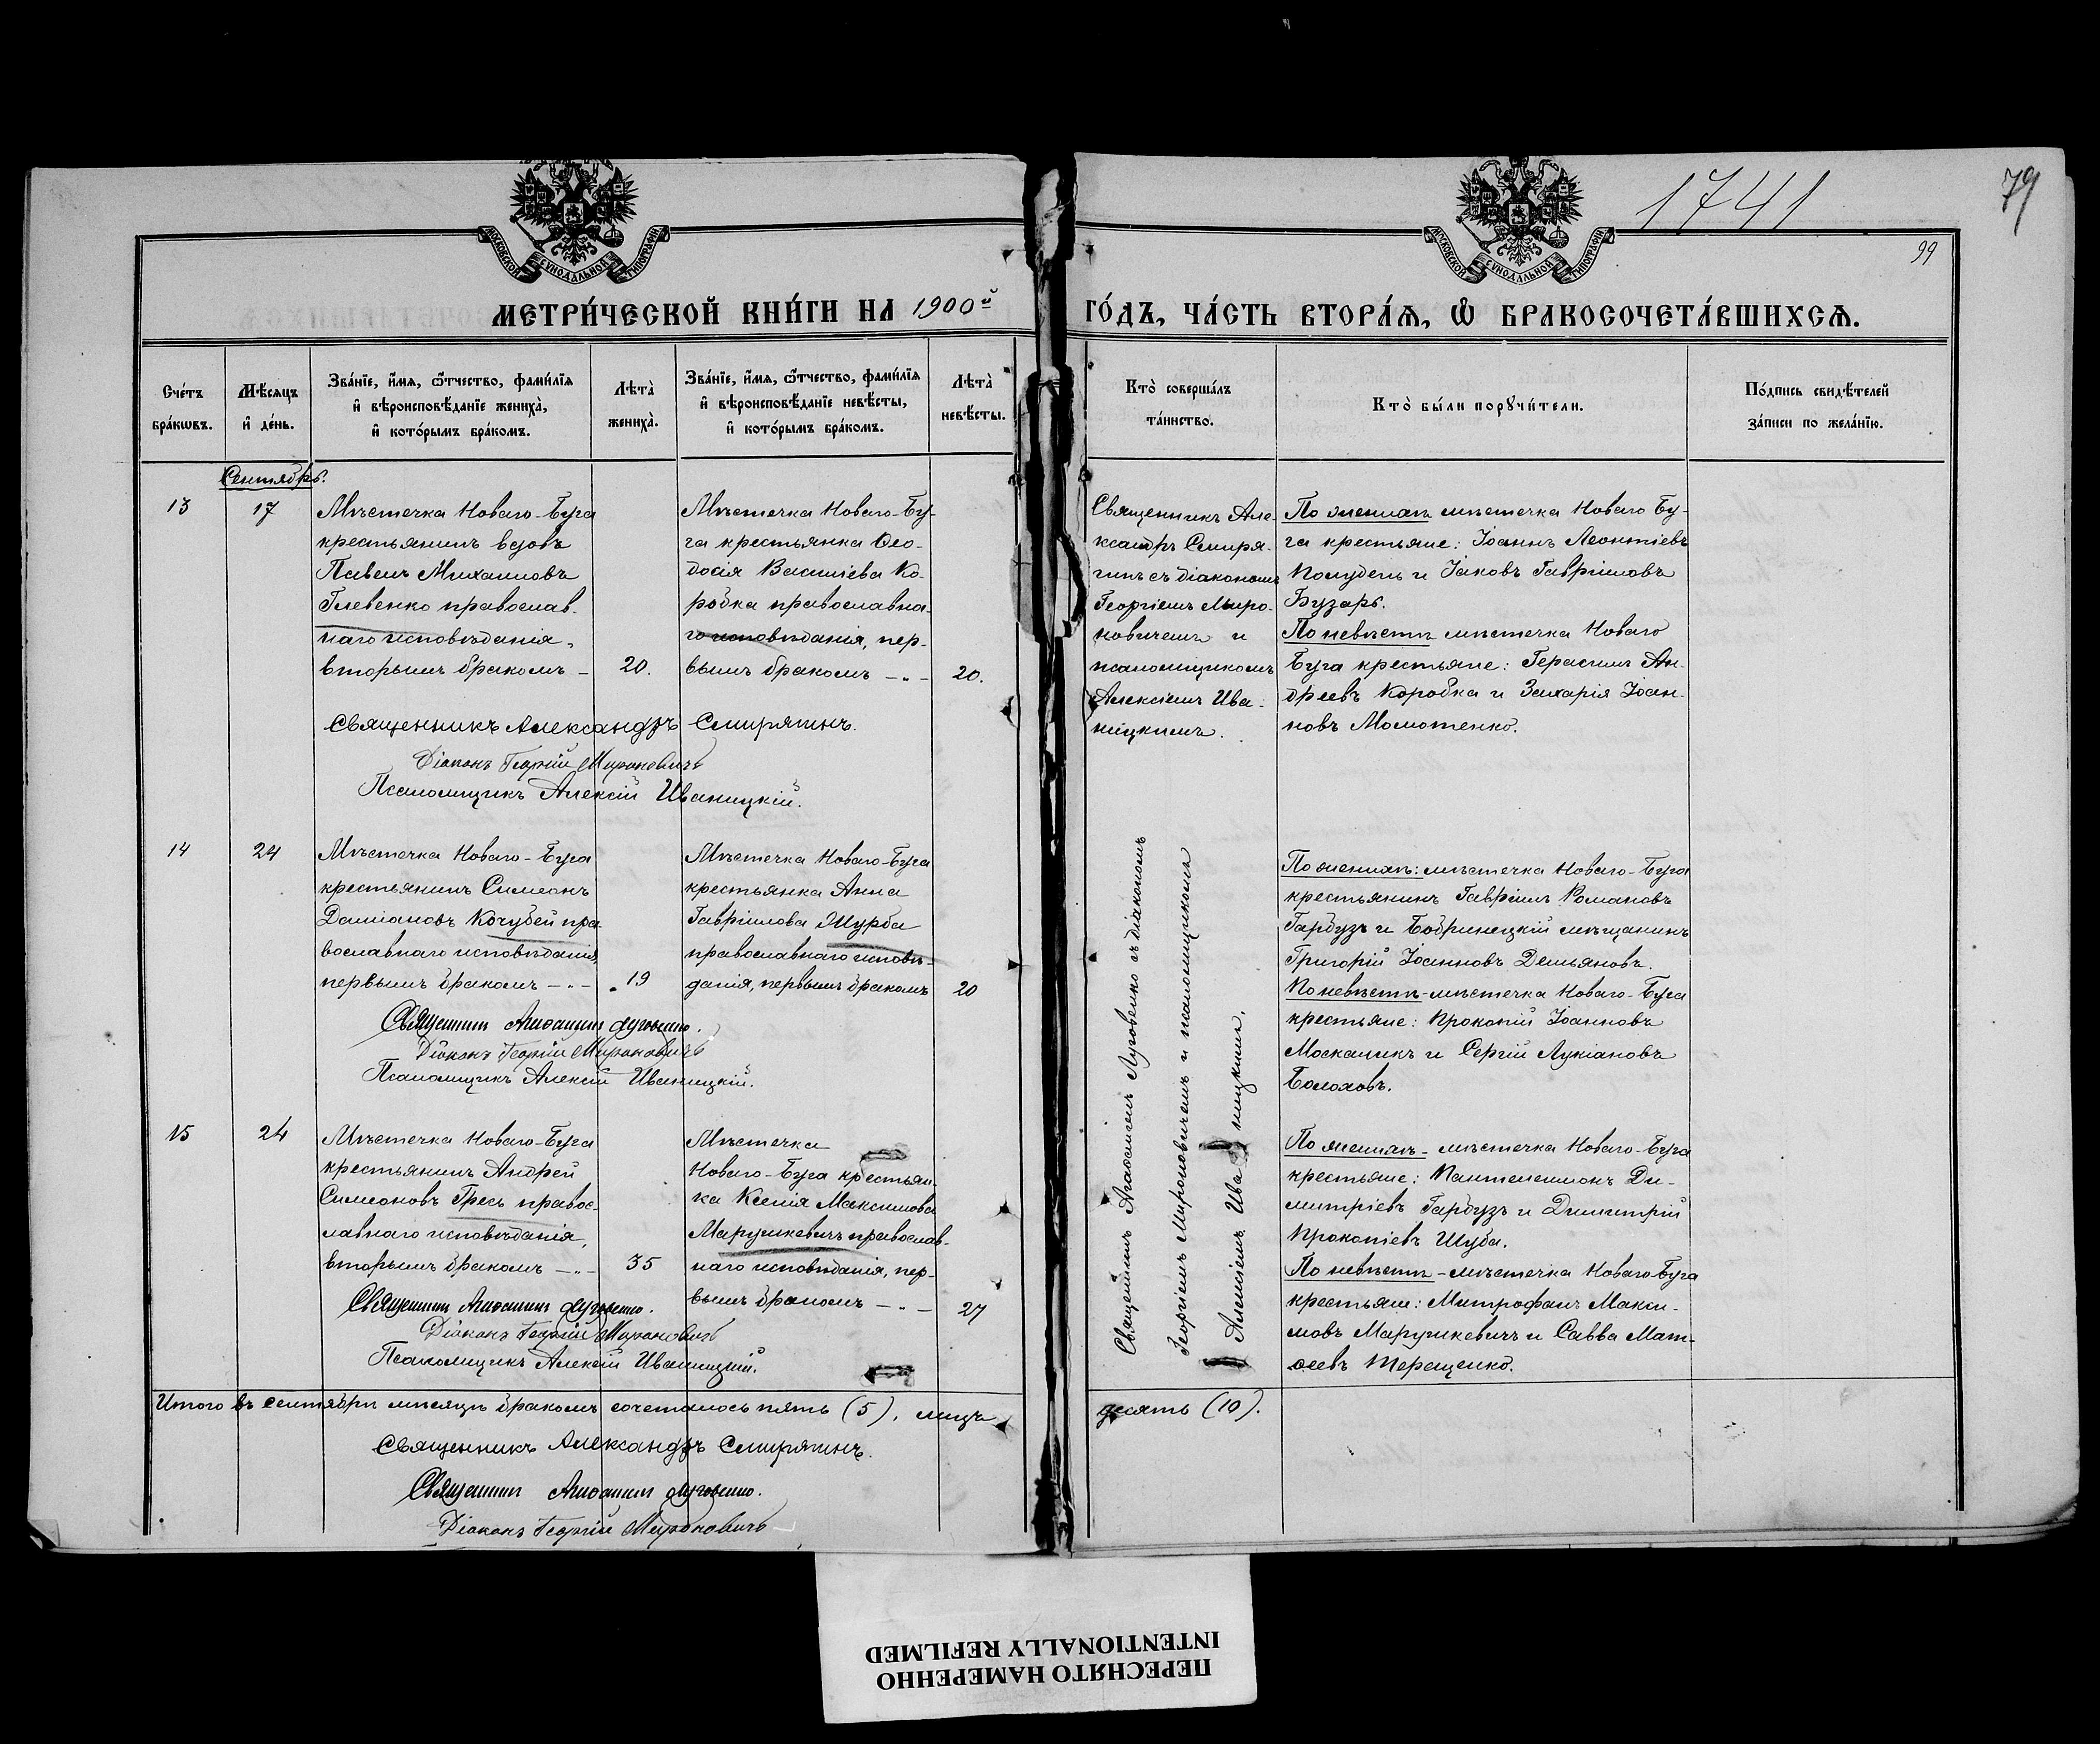 1741
79
99
МОСКОВСКОЙ СѴНОДАЛЬНОЙ ТИПОГРАФІИ
МОСКОВСКОЙ СѴНОДАЛЬНОЙ ТИПОГРАФІИ
МЕТРИ́ЧЕСКОЙ КНИ́ГИ НА 1900й ГО́ДЪ, ЧА́СТЬ ВТОРА́Ѧ, Ѡ БРАКОСОЧЕТА́ВШИХСѦ.
Сче́тъ
бра́кѡвъ.
Мѣ́сяцъ
и҆ де́нь.
Зва́нїе, и҆́мя, ѻ҆́тчество, фами́лїя
и҆ вѣроисповѣ́данїе жениха̀,
и҆ кото́рымъ бра́комъ.
Лѣта̀
жениха̀.
Зва́нїе, и҆́мя, ѻ҆́тчество, фами́лїя
и҆ вѣроисповѣ́данїе невѣ́сты,
и҆ кото́рымъ бра́комъ.
Лѣта̀
невѣ́сты.
Кто̀ соверша́лъ
та́инство.
Кто̀ бы́ли порꙋчи́тели.
По́дпись свидѣ́телей
за́писи по жела́нїю.
Сентябрь.
13
17
Мѣстечка Новаго-Буга
крестьянинъ вдовъ
Павелъ Михаиловъ
Глевенко православ-
наго исповѣданія,
вторымъ бракомъ -
20.
Мѣстечка Новаго-Бу-
га крестьянка Ѳео-
досія Василіева Ко-
робка православна-
го исповѣданія, пер-
вымъ бракомъ -"-
20.
Священникъ Але-
ксандръ Смиря-
гинъ съ діакономъ
Георгіемъ Миро-
новичемъ и
псаломщикомъ
Алексіемъ Ива-
ницкимъ.
По женихѣ мѣстечка Новаго Бу-
га крестьяне: Іоаннъ Леонтіевъ
Полудень и Іаковъ Гавріиловъ
Бузарь.
По невѣстѣ мѣстечка Новаго
Буга крестьяне: Герасимъ Ан-
дреевъ Коробка и Захарія Іоан-
новъ Момотенко.
Священникъ Александръ Смирягинъ.
Діаконъ Георгій Мироновичъ
Псаломщикъ Алексій Иваницкій.
14
24
Мѣстечка Новаго-Буга
крестьянинъ Симеонъ
Даміановъ Кочубей пра-
вославнаго исповѣданія,
первымъ бракомъ -"-
19
Мѣстечка Новаго-Буга
крестьянка Анна
Гавріилова Журба
православнаго исповѣ-
данія, первымъ бракомъ
20
Священникъ Агаѳангелъ Луговенко съ діакономъ
Георгіемъ Мироновичемъ и псаломщикомъ
Алексіемъ Иваницкимъ.
По женихѣ: мѣстечка Новаго-Буга
крестьянинъ Гавріилъ Романовъ
Гарбузъ и Бобринецкій мѣщанинъ
Григорій Іоанновъ Демьяновъ.
По невѣстѣ - мѣстечка Новаго-Буга
крестьяне: Прокопій Іоанновъ
Москаликъ и Сергій Лукіановъ
Болоховъ.
Священникъ Агаѳангелъ Луговенко.
Діаконъ Георгій Мироновичъ
Псаломщикъ Алексій Иваницкій.
15
24
Мѣстечка Новаго-Буга
крестьянинъ Андрей
Симеоновъ Гресь правос-
лавнаго исповѣданія,
вторымъ бракомъ -"-
35
Мѣстечка
Новаго-Буга крестьян-
ка Ксенія Максимова
Марушкевичъ православ-
наго исповѣданія, пер-
вымъ бракомъ -"-
27
По женихѣ - мѣстечка Новаго-Буга
крестьяне: Пантелеимонъ Ди-
митріевъ Гарбузъ и Димитрій
Прокопіевъ Шуба.
По невѣстѣ - мѣстечка Новаго-Буга
крестьяне: Митрофанъ Макси-
мовъ Марушкевичъ и Савва Мат-
ѳеевъ Терещенко.
Священникъ Агаѳангелъ Луговенко.
Діаконъ Георгій Мироновичъ
Псаломщикъ Алексій Иваницкій.
Итого въ сентябрѣ мѣсяцѣ бракомъ сочеталось пять (5), лицъ десять (10).
Священникъ Александръ Смирягинъ.
Священникъ Агаѳангелъ Луговенко.
Діаконъ Георгій Мироновичъ
ПЕРЕСНЯТО НАМЕРЕННО
INTENTIONALLY REFILMED